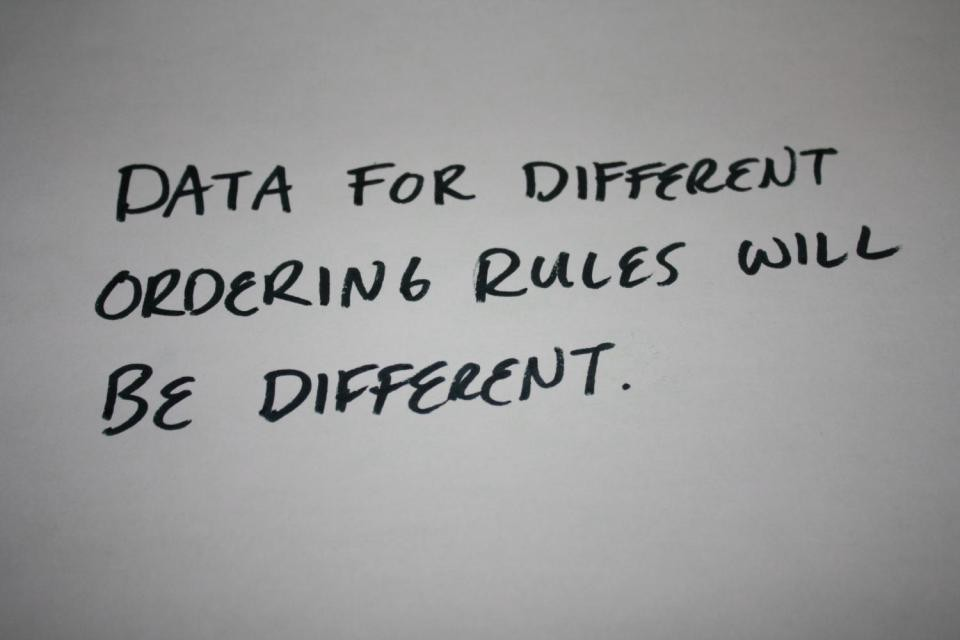 DATA FOR DIFFERENT
ORDERING RULES WILL
BE DIFFERENT.